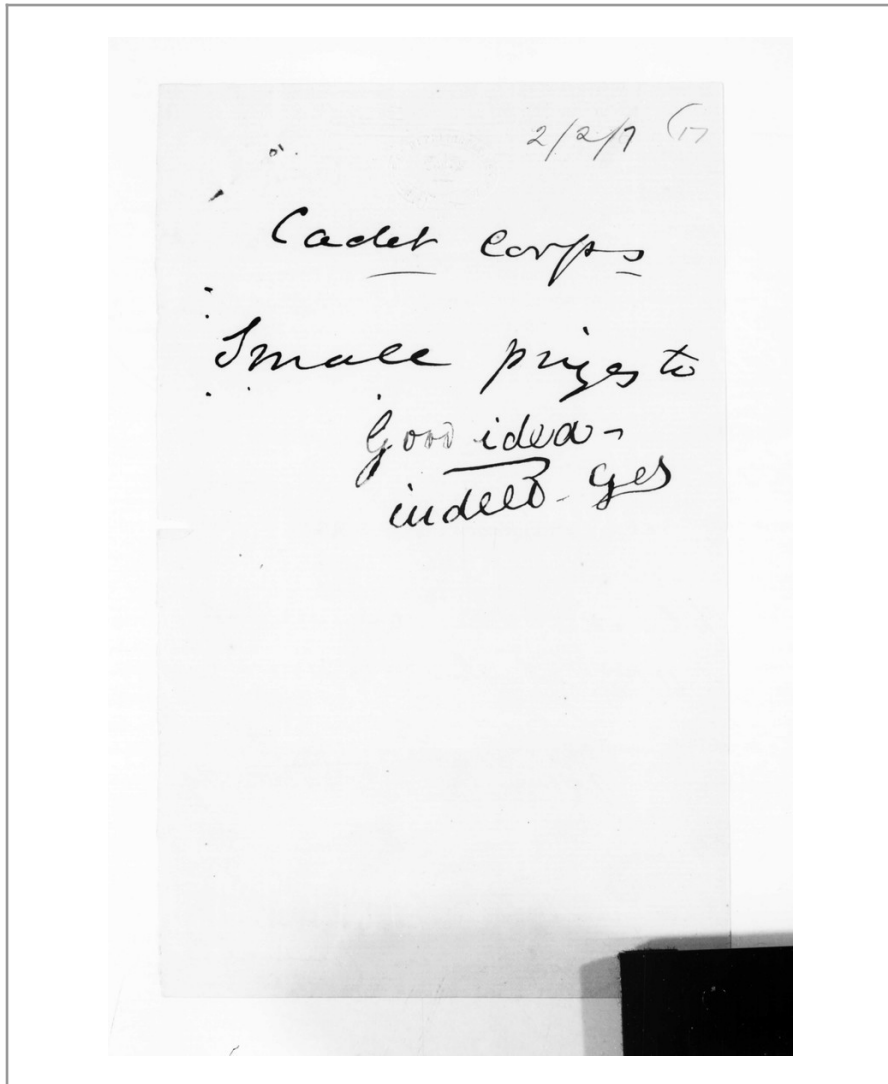 2/2/7 (17
Cadet Corps
Small prizes to
Good idea -
indeed - Yes